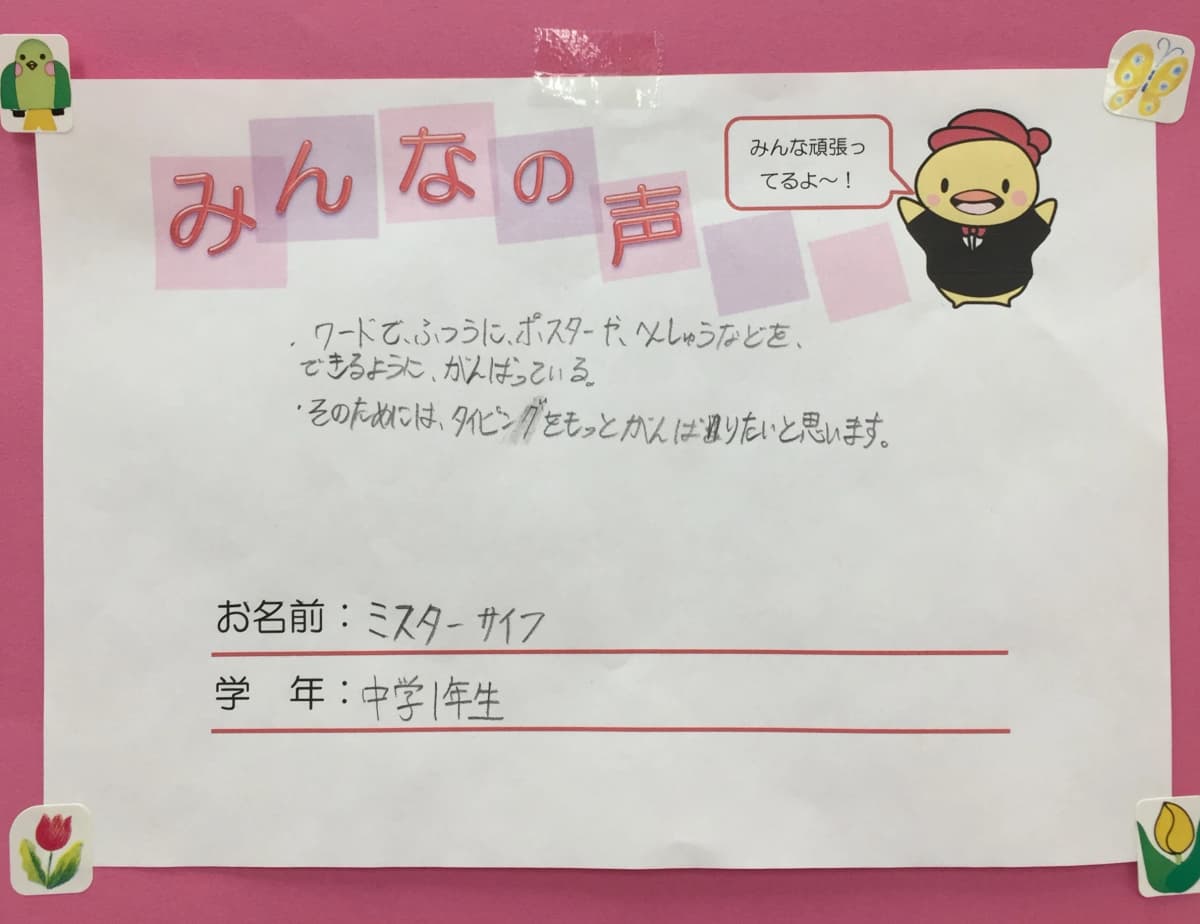 みんなの声
みんな頑張っ
てるよ～！
・ワードで、ふつうに、ポスターや、へんしゅうなどを、
できるように、がんばっている。
・そのためには、タイピングをもっとがんばりたいと思います。
お名前：ミスターサイフ
学　年：中学1年生